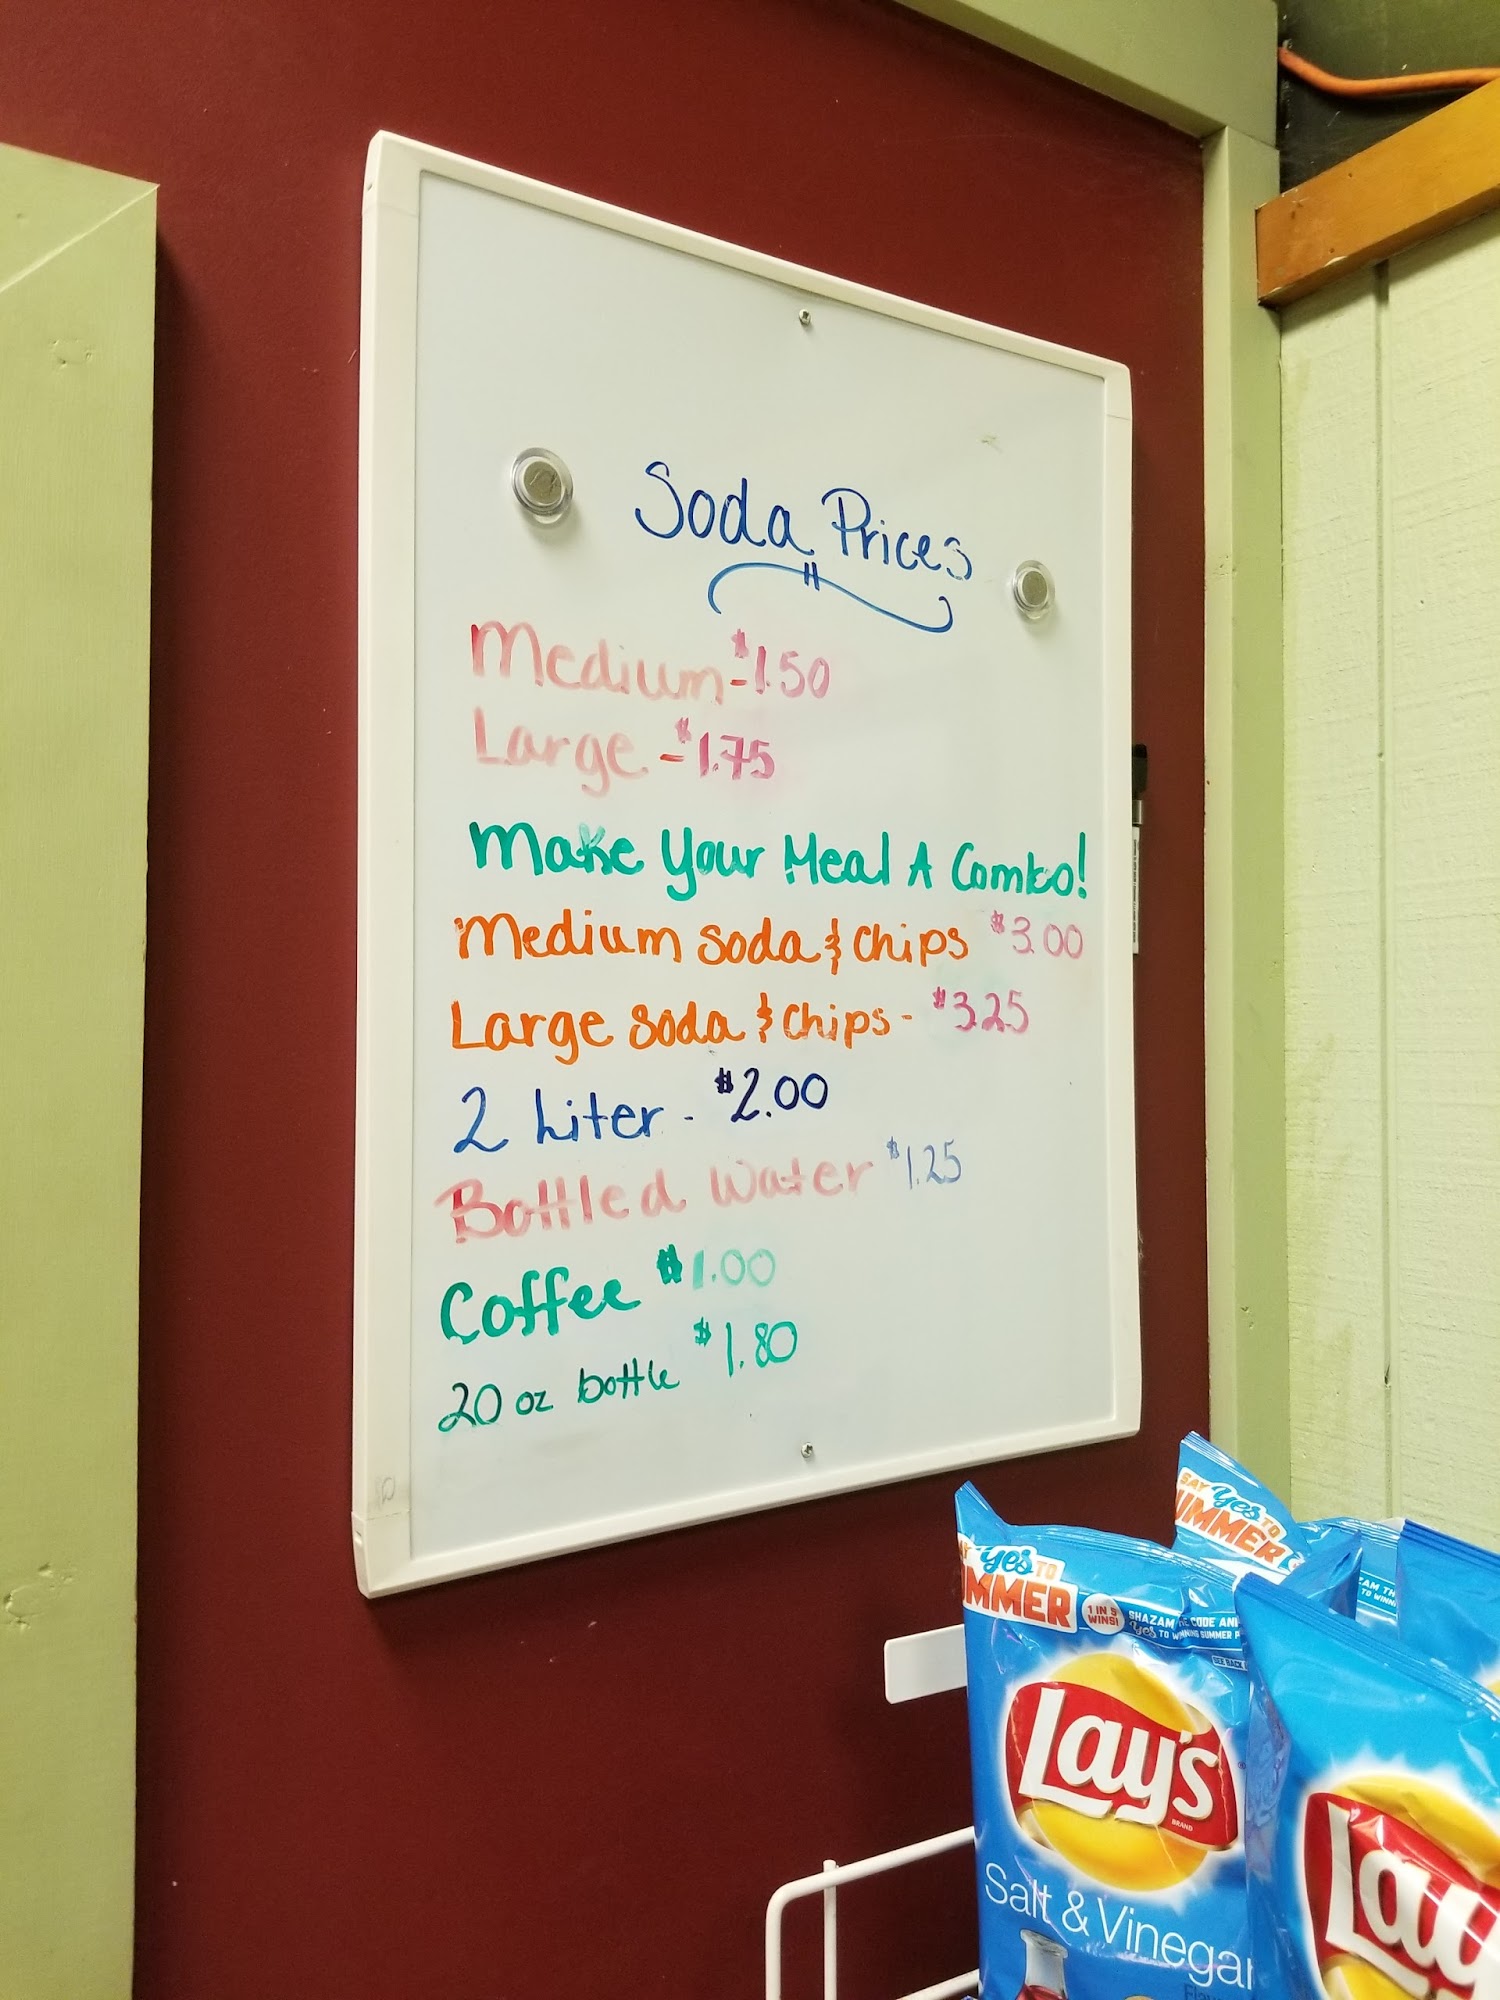 Soda Prices
Medium - $1.50
Large - $1.75
Make Your Meal A Combo!
Medium soda & chips $3.00
Large soda & chips - $3.25
2 Liter - $2.00
Bottled Water $1.25
Coffee $1.00
20 oz bottle $1.80
SAY yes TO
UMMER
yes TO
MMER
1 IN 5
WINS!
SHAZAM THE CODE AND
yes TO WINNING SUMMER P
SEE BACK
ZAM TH
TO WINN
Lay's
BRAND
Salt & Vinegar
Lay